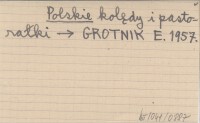 Polskie kolędy i pasto-
rałki → GROTNIK E. 1957.